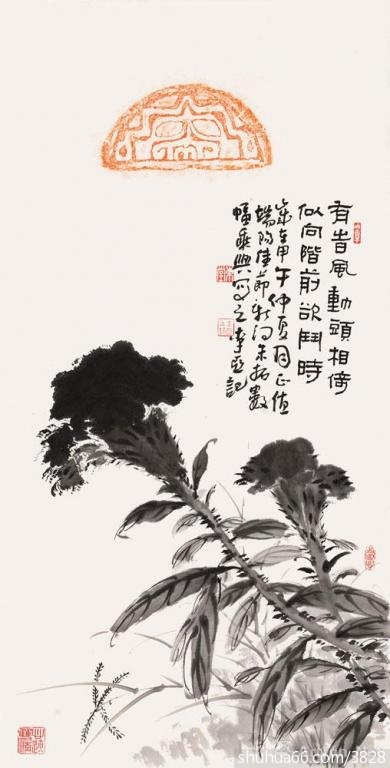 有旹風動頭相倚
似向階前欲鬥時
歲在甲午仲夏月正值
端陽佳節新得朱拓數
幅乘興寫之李記
shuhua66.com/3828